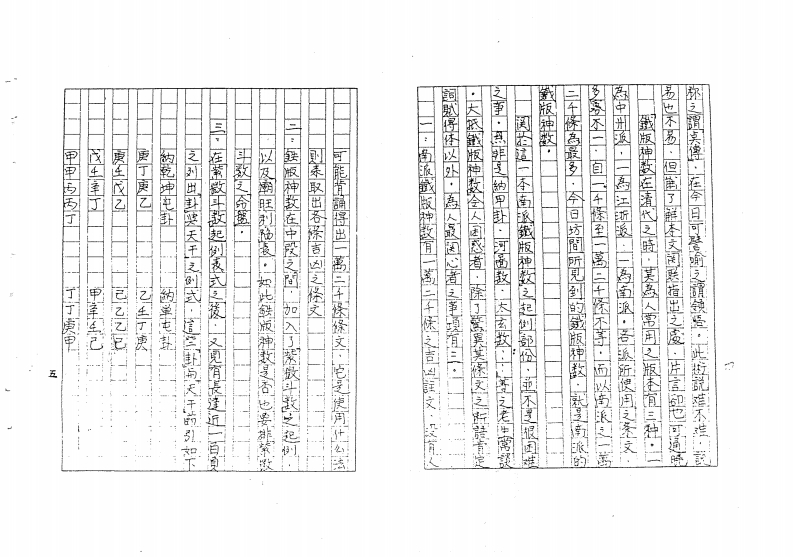 弥之謂真傳，在今日可譬喻之謂鎮語，此術說难不难，說
易也不易，但為了解本文関點指出之處，片言卻也可通曉
鐵版神数在清代之時，其為人常用之版本有三种，一
為中州派，一為江浙派，一為南派。各派所使用之条文，
多寡不一，自一千條至一萬二千條不等，而以南派之一萬
二千條為最多，今日坊間所見到的鐵版神数，就是南派的
鐵版神数。
関於這一本南派鐵版神数之起例部份，並不是很困难
之事，無非是納甲卦，河圖数，太玄数，
。大抵鐵版神数令人困惑者，除了驚異其條文之所語肯定
詞賦得体以外，為人最関心者之事項有三。
一：南派鐵版神数有一萬二千條之吉凶註文，沒有人
可能背誦得出一萬二千條條文，它是使用什么法
則來取出各條吉凶之條文
二：鉄版神数在中段之間，加入了紫微斗数之起例，
以及廟旺利陷表，如此鉄版神数是否也要排紫微
斗数之命盤。
三：在紫微斗数起例表式之後，又更有長達近一百頁
之列出卦與天干之例式，這些卦与天干前引如下
納乾坤屯卦 納单屯卦
庚丁庚乙 乙壬丁庚
庚壬戊乙 己乙乙己
戊壬辛丁 甲辛壬己
甲甲丙丙丁 丁丁庚甲
五